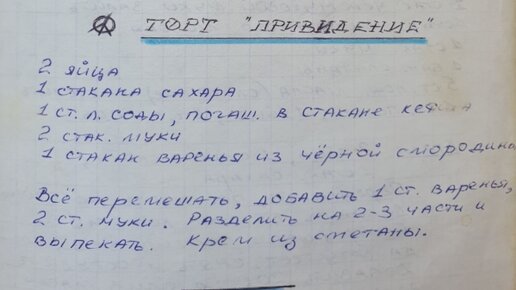 ТОРТ "ПРИВИДЕНИЕ"
2 ЯЙЦА
1 СТАКАНА САХАРА
1 СТ. Л. СОДЫ, ПОГАШ. В СТАКАНЕ КЕФИРА
2 СТАК. МУКИ
1 СТАКАН ВАРЕНЬЯ ИЗ ЧЁРНОЙ СМОРОДИНЫ
ВСЁ ПЕРЕМЕШАТЬ, ДОБАВИТЬ 1 СТ. ВАРЕНЬЯ,
2 СТ. МУКИ. РАЗДЕЛИТЬ НА 2-3 ЧАСТИ И
ВЫПЕКАТЬ. КРЕМ ИЗ СМЕТАНЫ.